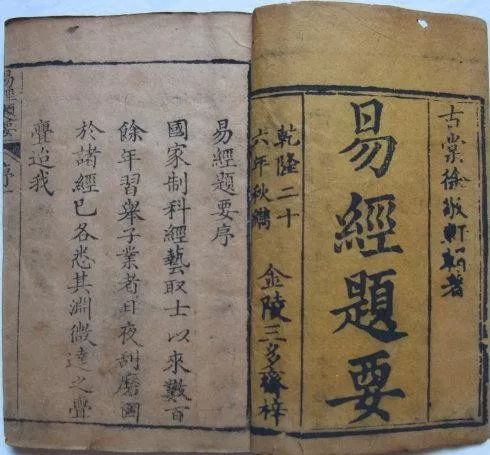 古棠徐敬軒新著
易經題要
乾隆二十
六年秋鐫
金陵三多齋梓
易經題要序
國家制科經藝取士以來數百
餘年習舉子業者日夜刮磨固
於諸經已各悉其淵微達之
迨我
易經題要 序 一